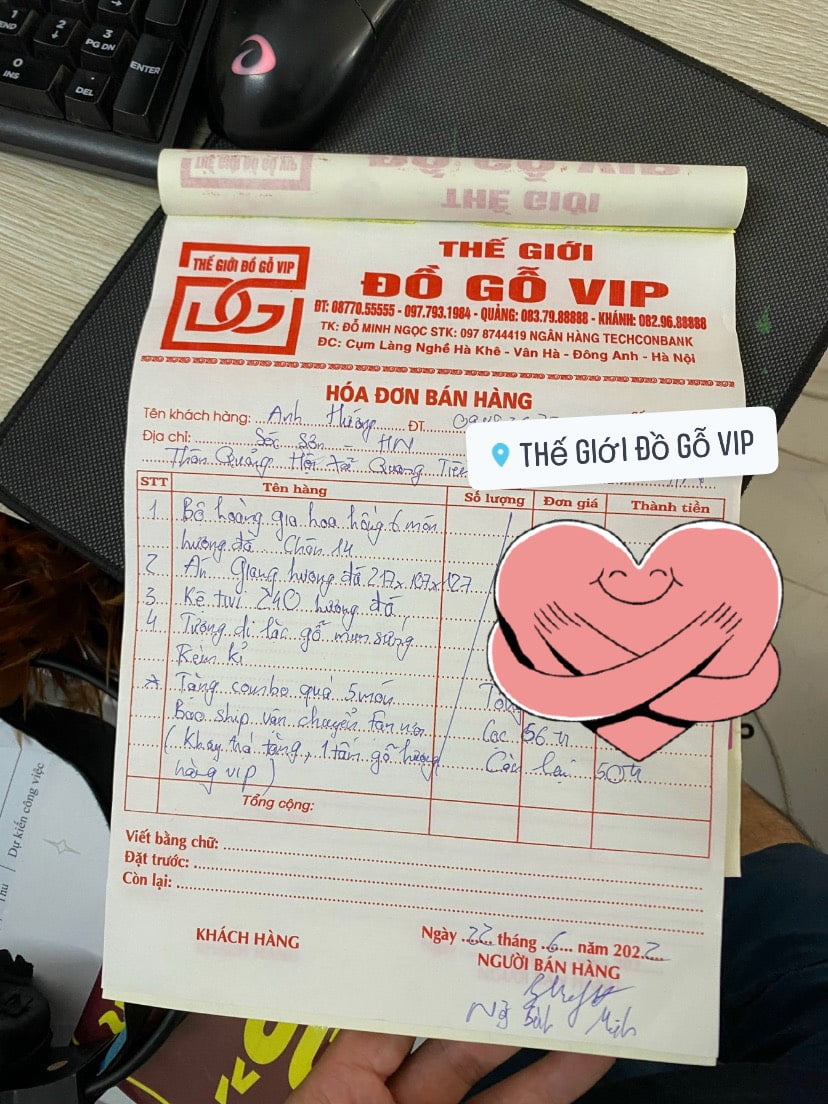 END
PG DN
ENTER
INS
DEL
THẾ GIỚI ĐỒ GỖ VIP
THẾ GIỚI
ĐỒ GỖ VIP
ĐT: 08770.55555 - 097.793.1984 - QUẢNG: 083.79.88888 - KHÁNH: 082.96.88888
TK: ĐỖ MINH NGỌC STK: 097 8744419 NGÂN HÀNG TECHCONBANK
ĐC: Cụm Làng Nghề Hà Khê - Vân Hà - Đông Anh - Hà Nội
HÓA ĐƠN BÁN HÀNG
Tên khách hàng: Anh Hướng ĐT
Địa chỉ: Sóc Sơn - HN
Thôn Quảng Hội xã Quang Tiến
THẾ GIỚI ĐỒ GỖ VIP
STT Tên hàng Số lượng Đơn giá Thành tiền
1 Bộ hoàng gia hoa hồng 6 món
hương đá Chân 14
2 Án Giang hương đá 217x107x127
3 Kệ tivi 240 hương đá
4 Tượng di lặc gỗ mun sừng
Kèm kỉ
* Tặng combo quà 5 món Tổng
Bao ship vận chuyển tận nơi Cọc 56tr
(Khay trà tặng, 1 tấn gỗ hương Còn lại 50tr
hàng vip)
Tổng cộng:
Viết bằng chữ:
Đặt trước:
Còn lại:
Ngày 22 tháng 6 năm 2022
KHÁCH HÀNG NGƯỜI BÁN HÀNG
Dự kiến công việc